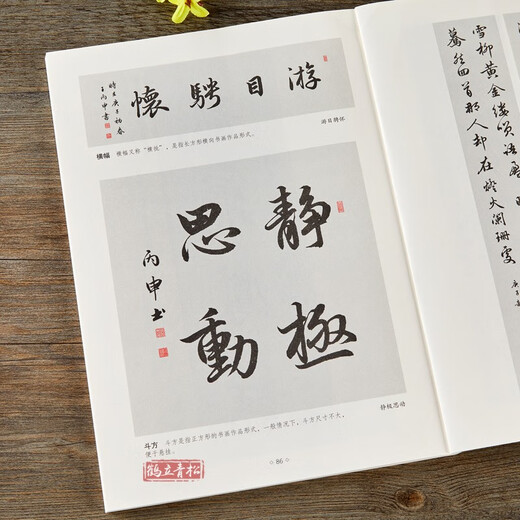 游目騁懷
時在庚子初春
王丙申書
游目骋怀
横幅 横幅又称“横披”，是指长方形横向书画作品形式。
静極
思動
丙申书
静极思动
斗方 斗方是指正方形的书画作品形式，一般情况下，斗方尺寸不大，
便于悬挂。
86
鹤立青松
雪柳黄金缕笑语盈
蓦然回首那人却在灯火阑珊处